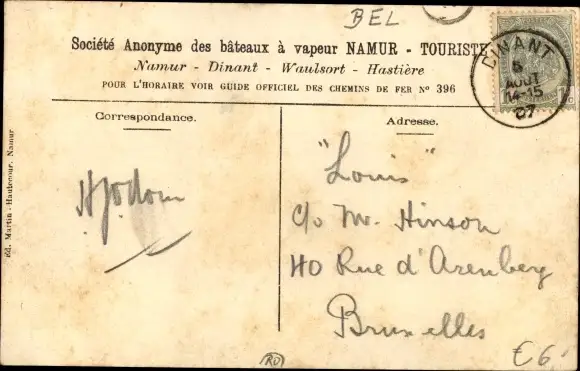 BEL
Société Anonyme des bâteaux à vapeur NAMUR - TOURISTE
Namur - Dinant - Waulsort - Hastière
POUR L'HORAIRE VOIR GUIDE OFFICIEL DES CHEMINS DE FER Nº 396
DINANT
5
AOUT
14-15
07
Correspondance.
Adresse.
"Louis"
c/o Mr. Hinson
40 Rue d'Arenberg
Bruxelles
Éd. Martin-Hautecour, Namur
RO
€6.